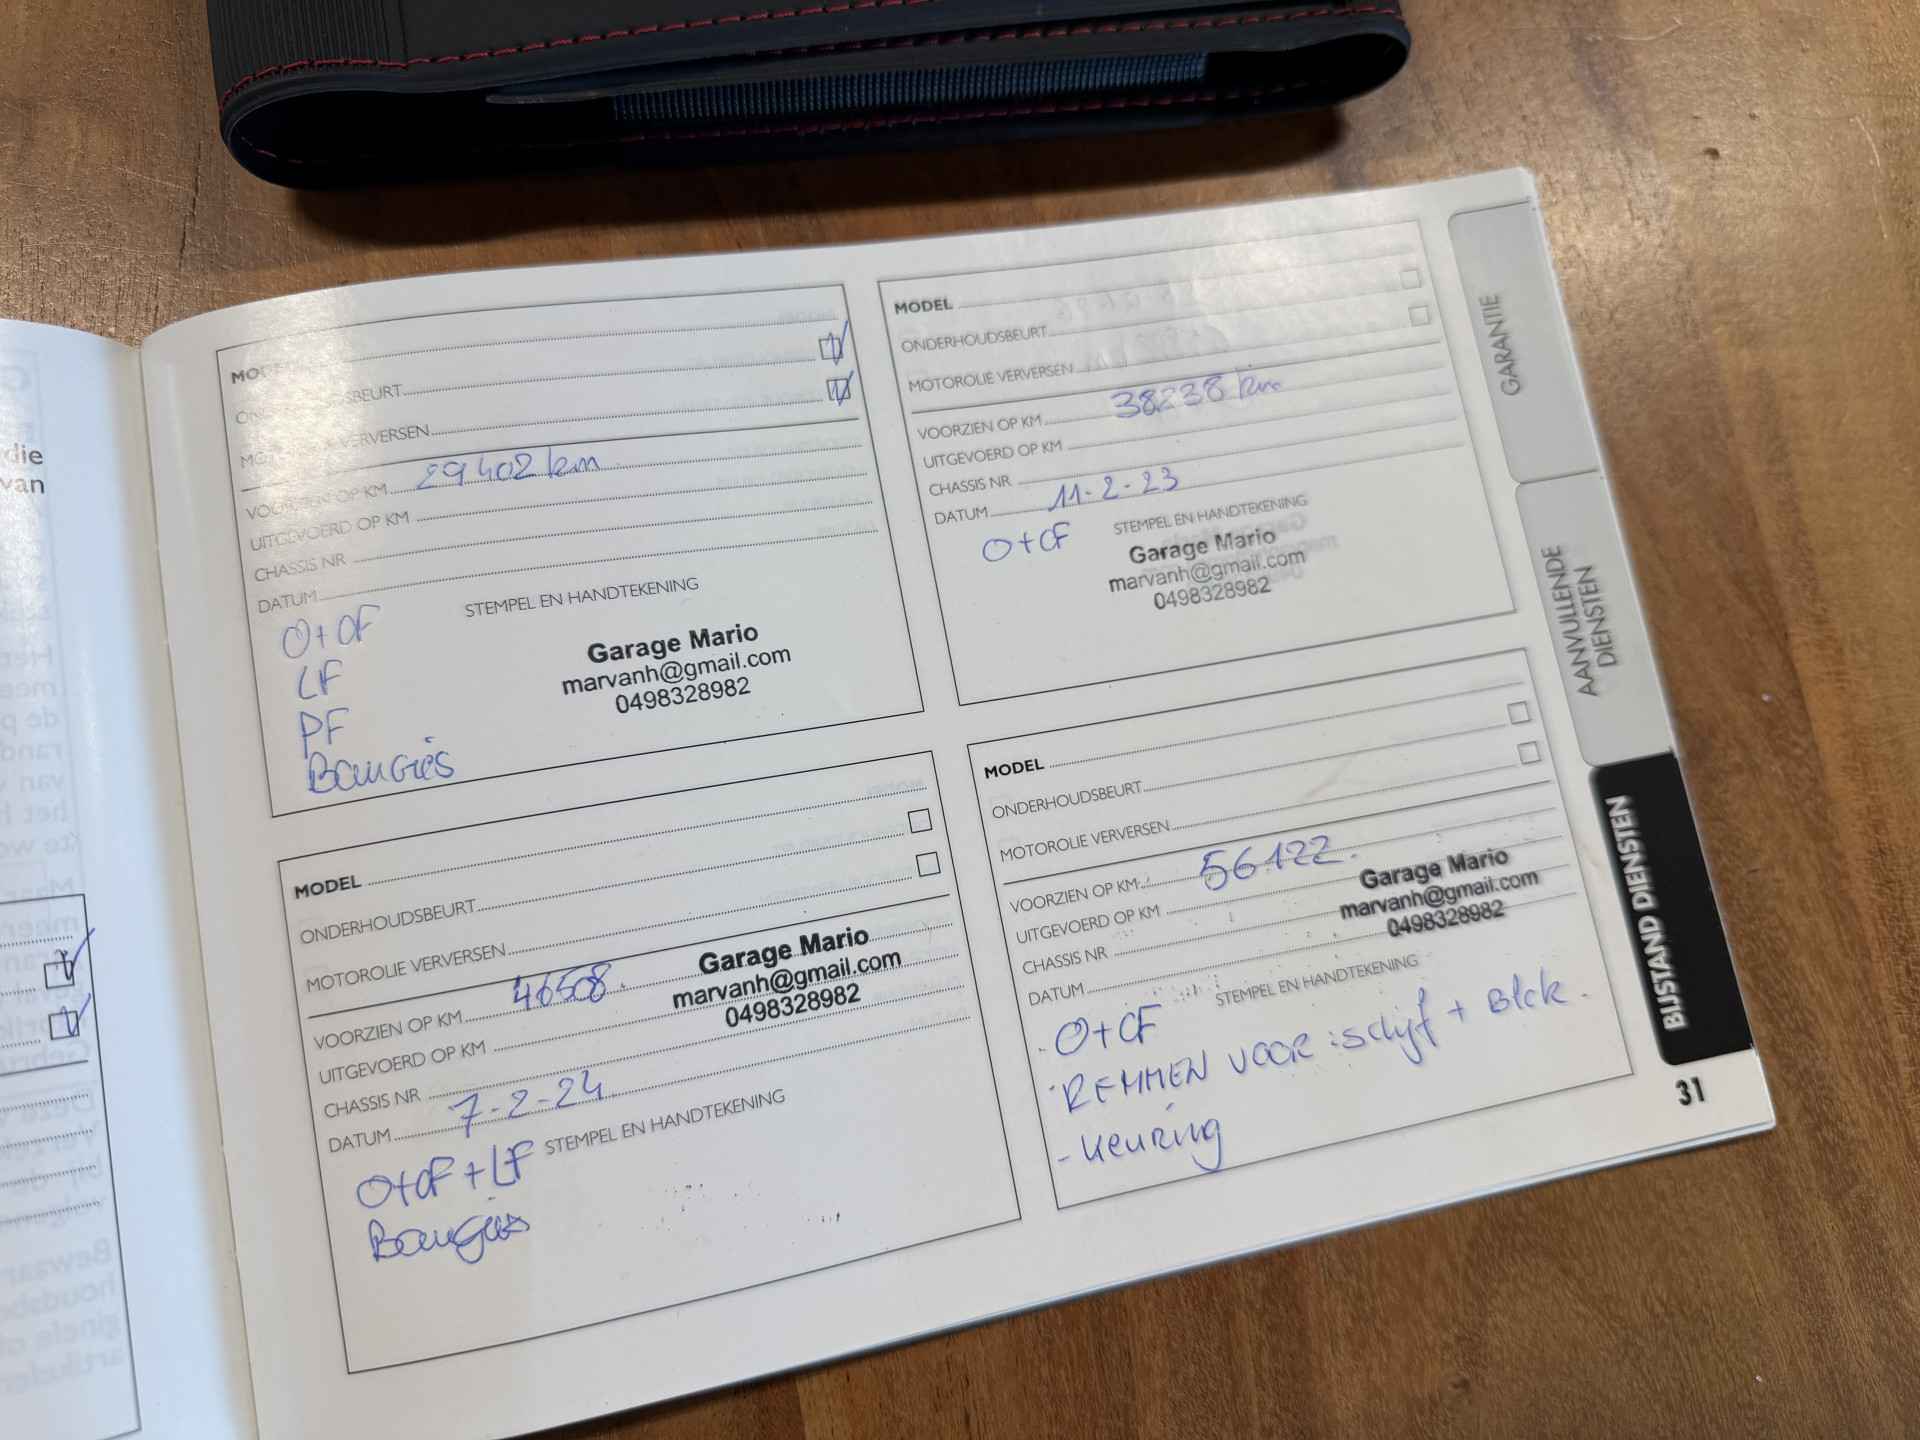 MODEL
ONDERHOUDSBEURT
MOTOROLIE VERVERSEN
29402 km
VOORZIEN OP KM
UITGEVOERD OP KM
CHASSIS NR
DATUM
STEMPEL EN HANDTEKENING
O+OF
LF
PF
Bougies
Garage Mario
marvanh@gmail.com
0498328982
MODEL
ONDERHOUDSBEURT
MOTOROLIE VERVERSEN
38238 km
VOORZIEN OP KM
UITGEVOERD OP KM
CHASSIS NR
DATUM 11-2-23
O+OF
STEMPEL EN HANDTEKENING
Garage Mario
marvanh@gmail.com
0498328982
MODEL
ONDERHOUDSBEURT
MOTOROLIE VERVERSEN
VOORZIEN OP KM 46508.
UITGEVOERD OP KM
CHASSIS NR
DATUM 7-2-24
STEMPEL EN HANDTEKENING
Garage Mario
marvanh@gmail.com
0498328982
O+OF + LF
Bougies
MODEL
ONDERHOUDSBEURT
MOTOROLIE VERVERSEN
VOORZIEN OP KM 56122.
UITGEVOERD OP KM
CHASSIS NR
DATUM
STEMPEL EN HANDTEKENING
Garage Mario
marvanh@gmail.com
0498328982
- O+OF
- REMMEN VOOR : schijf + Blok.
- keuring
GARANTIE
AANVULLENDE
DIENSTEN
BIJSTAND DIENSTEN
31
die
van